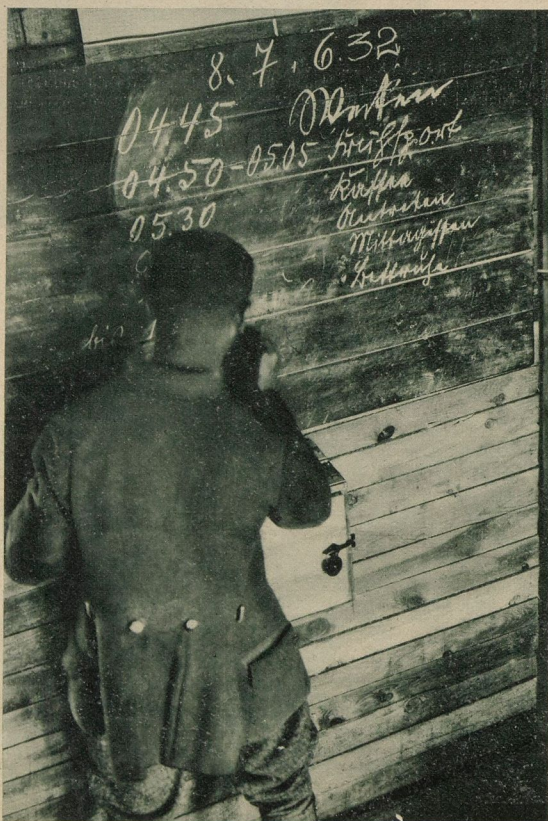 8. 7. 6.32
0445 Wecken
04.50-05.05 Frühsport
05.30 Kaffee
Antreten
Mittagessen
Bettruhe
bis